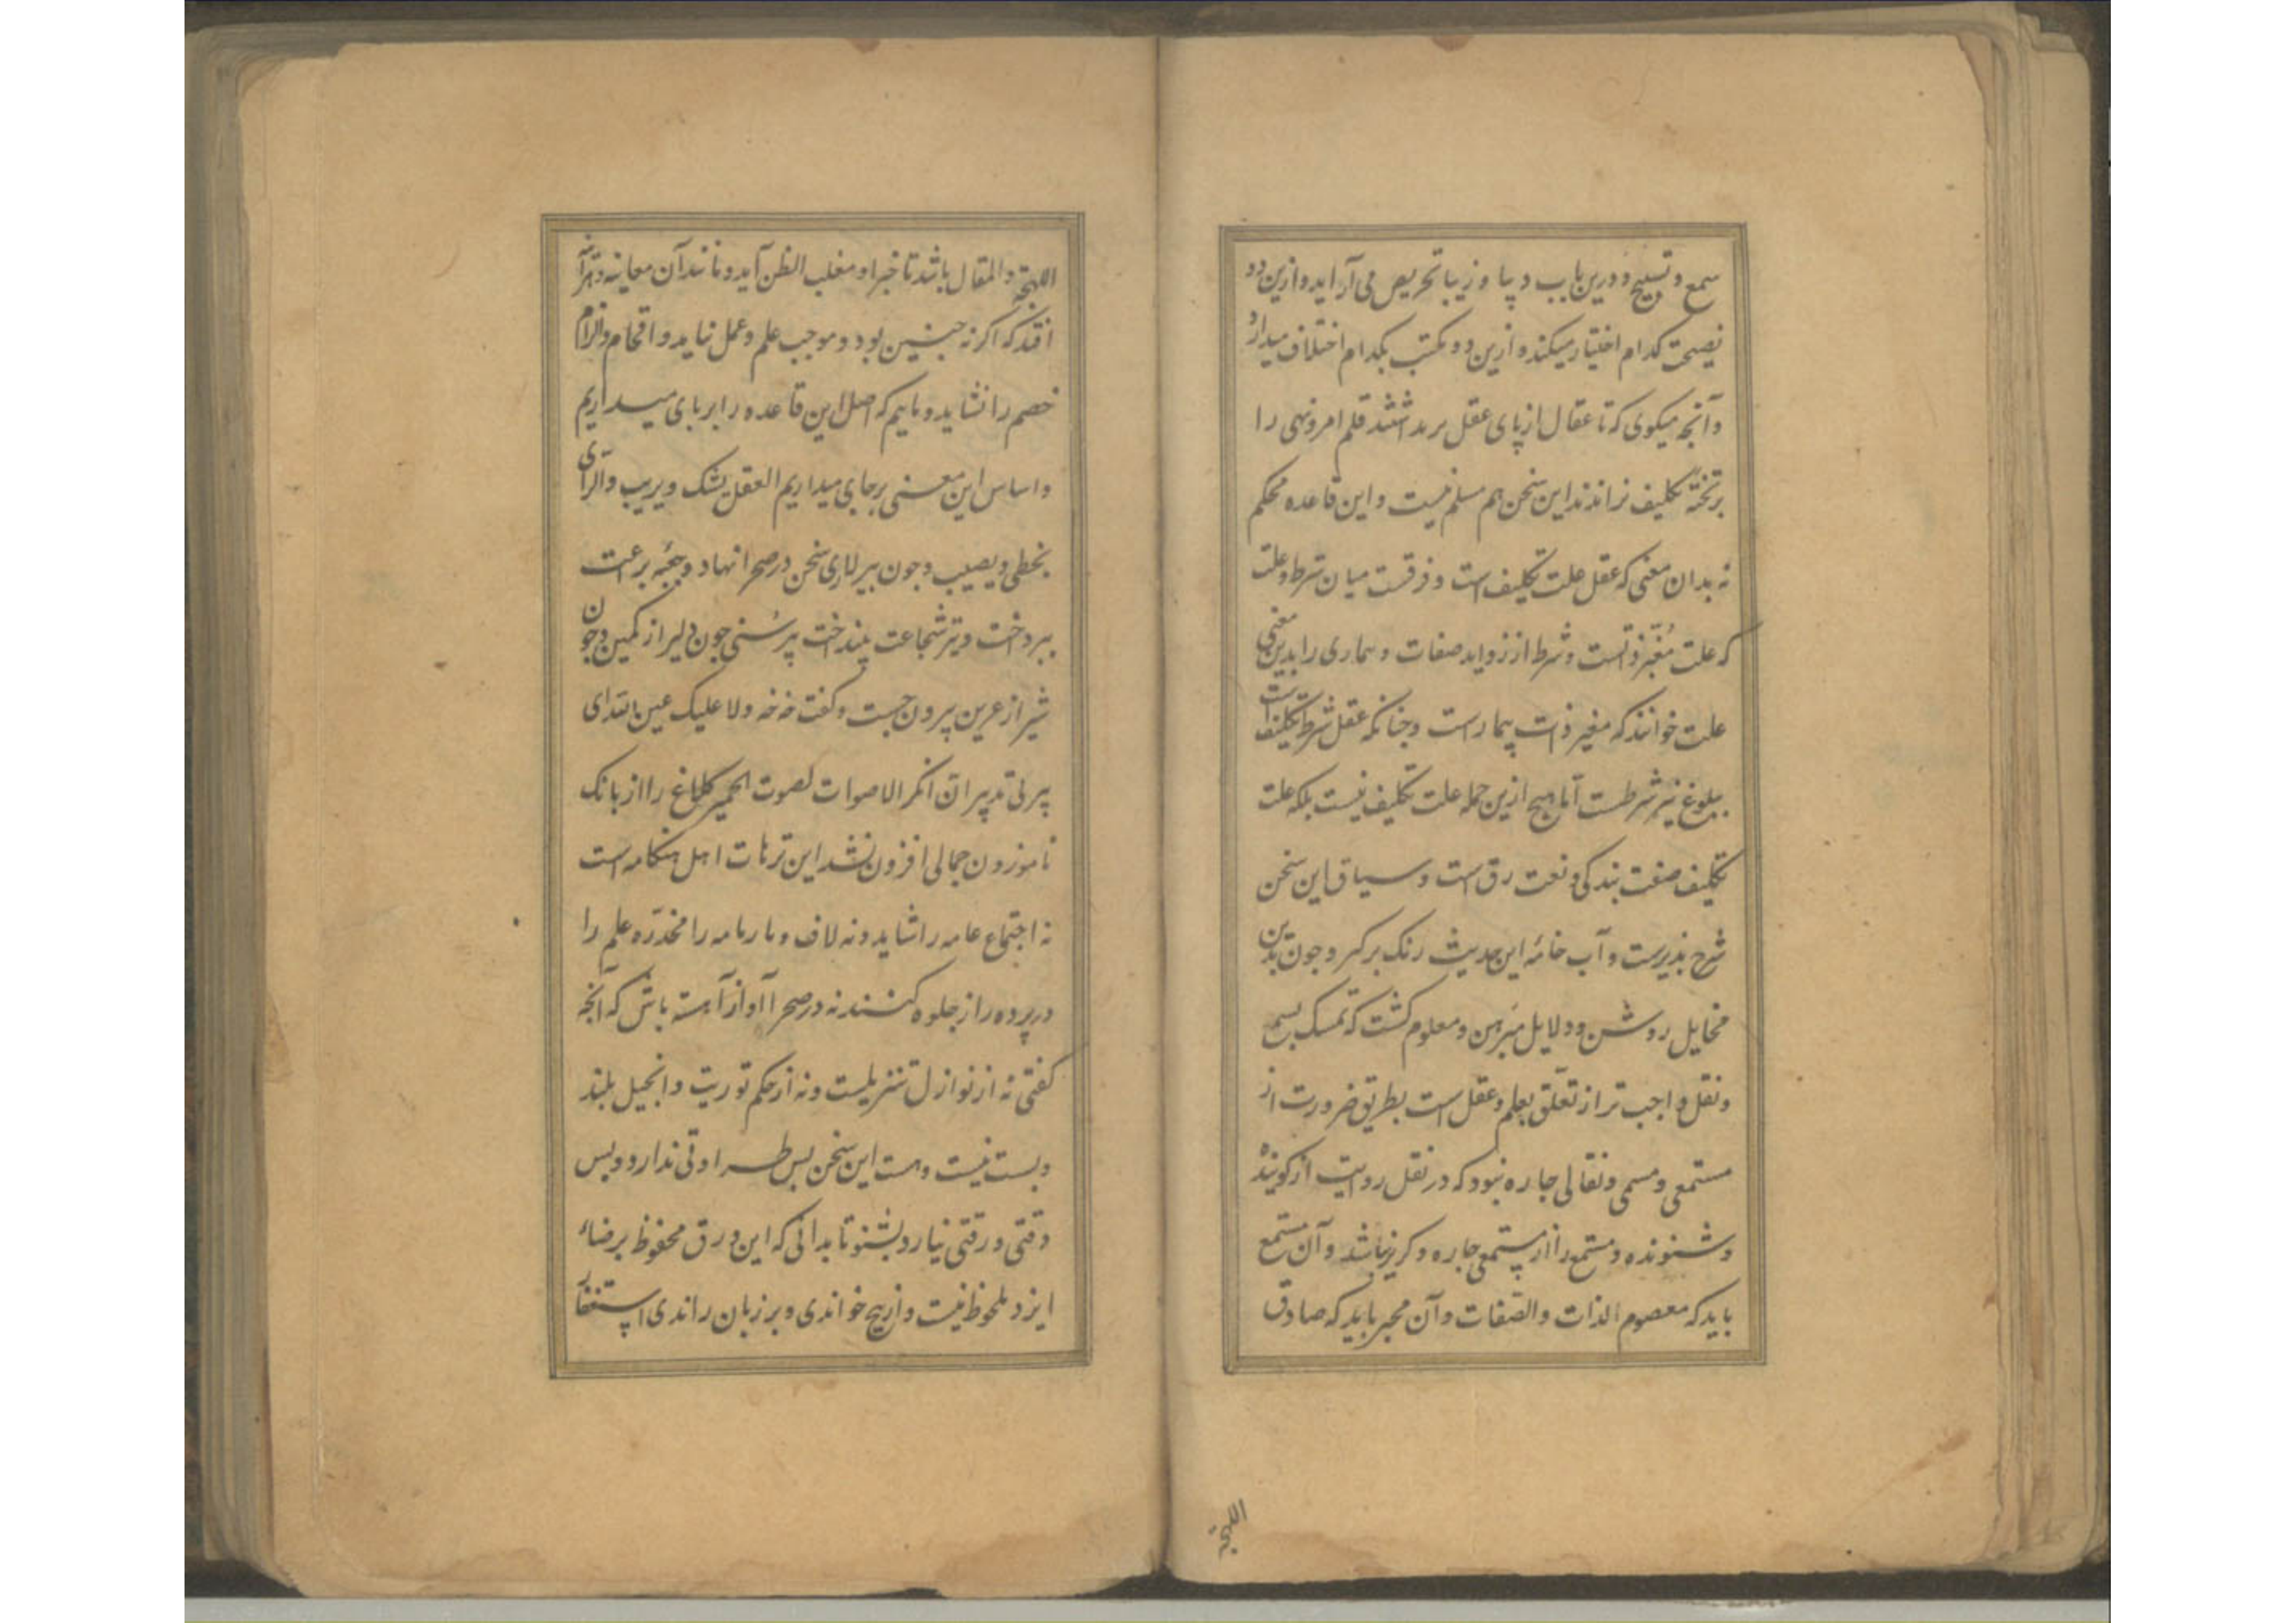 سمع و تسبیح و درین باب دیبا و زیبا تحریص می آراید و ازین دو
نصیحت کدام اختیار میکند و ازین دو مکتب بکدام اختلاف میدارد
و آنچه میکوی که تا عقال از پای عقل برنداشتند قلم امر و نهی را
بر تخته تکلیف نراندند این سخن هم مسلم نیست و این قاعده محکم
نه بدان معنی که عقل علت تکلیف است و فرقست میان شرط و علت
که علت مُغیّر ذاتست و شرط از زواید صفات و بیماری را بدین معنی
علت خوانند که مغیر ذات بیمارست و جنانکه عقل شرط تکلیف است
بلوغ نیز شرطست اما هیچ ازین جمله علت تکلیف نیست بلکه علت
تکلیف صفت بندکی و نعت رق است و سیاق این سخن
شرح بذیرست و آب خانهٔ این حدیث رنک برکیر و جون بدین
مخایل روشن و دلایل مبرهن و معلوم کشت که تمسک بسمع
و نقل واجب تر از تعلّق بعلم و عقل است بطریق ضرورت از
مستمعی و مسمعی و نقالی جاره نبود که در نقل روایت از کوینده
و شنونده و مستمع را از مستمعی جاره و کریز نباشد و آن مستمع
باید که معصوم الذات والصّفات و آن مخبر باید که صادق
اللهجه
اللهجه والمقال باشد تا خبر او مغلب الظن آید و مانند آن معاینه و
افتد که اکر نه جنین بود و موجب علم و عمل نیاید و اقحام و الزام
خصم را نشاید و ماییم که اصل این قاعده را بر پای میداریم
و اساس این معنی بر جای میداریم العقل یشک و یریب والرای
یخطی و یصیب و جون پیر سخن در صحرا نهاد و جعبه برعت
بپرداخت و تیر شجاعت بینداخت پیر سُنی جون دلیر از کمین و جون
شیر از عرین بیرون جست و کفت خه خه ولا علیک عین الله ای
پیر بی تدبیر ان انکر الاصوات لصوت الحمیر کلاغ را از بانک
ناموزون جمالی افزون نشد این ترهات اهل هنکامه است
نه اجتماع عامه را شاید و نه لاف و بارنامه را مخدّره علم را
در پرده راز جلوه کنند نه در صحرا آواز آهسته باش که آنجه
کفتی نه از نوازل تنزیلست و نه از حکم توریت و انجیل بلند
و بست نیست و هست این سخن بس طراوتی ندارد و بس
دقتی و رقتی نیارد بشنو تا بدانی که این ورق محفوظ برضاء
ایزد ملحوظ نیست و ازیچ خواندی و بر زبان راندی استغفار